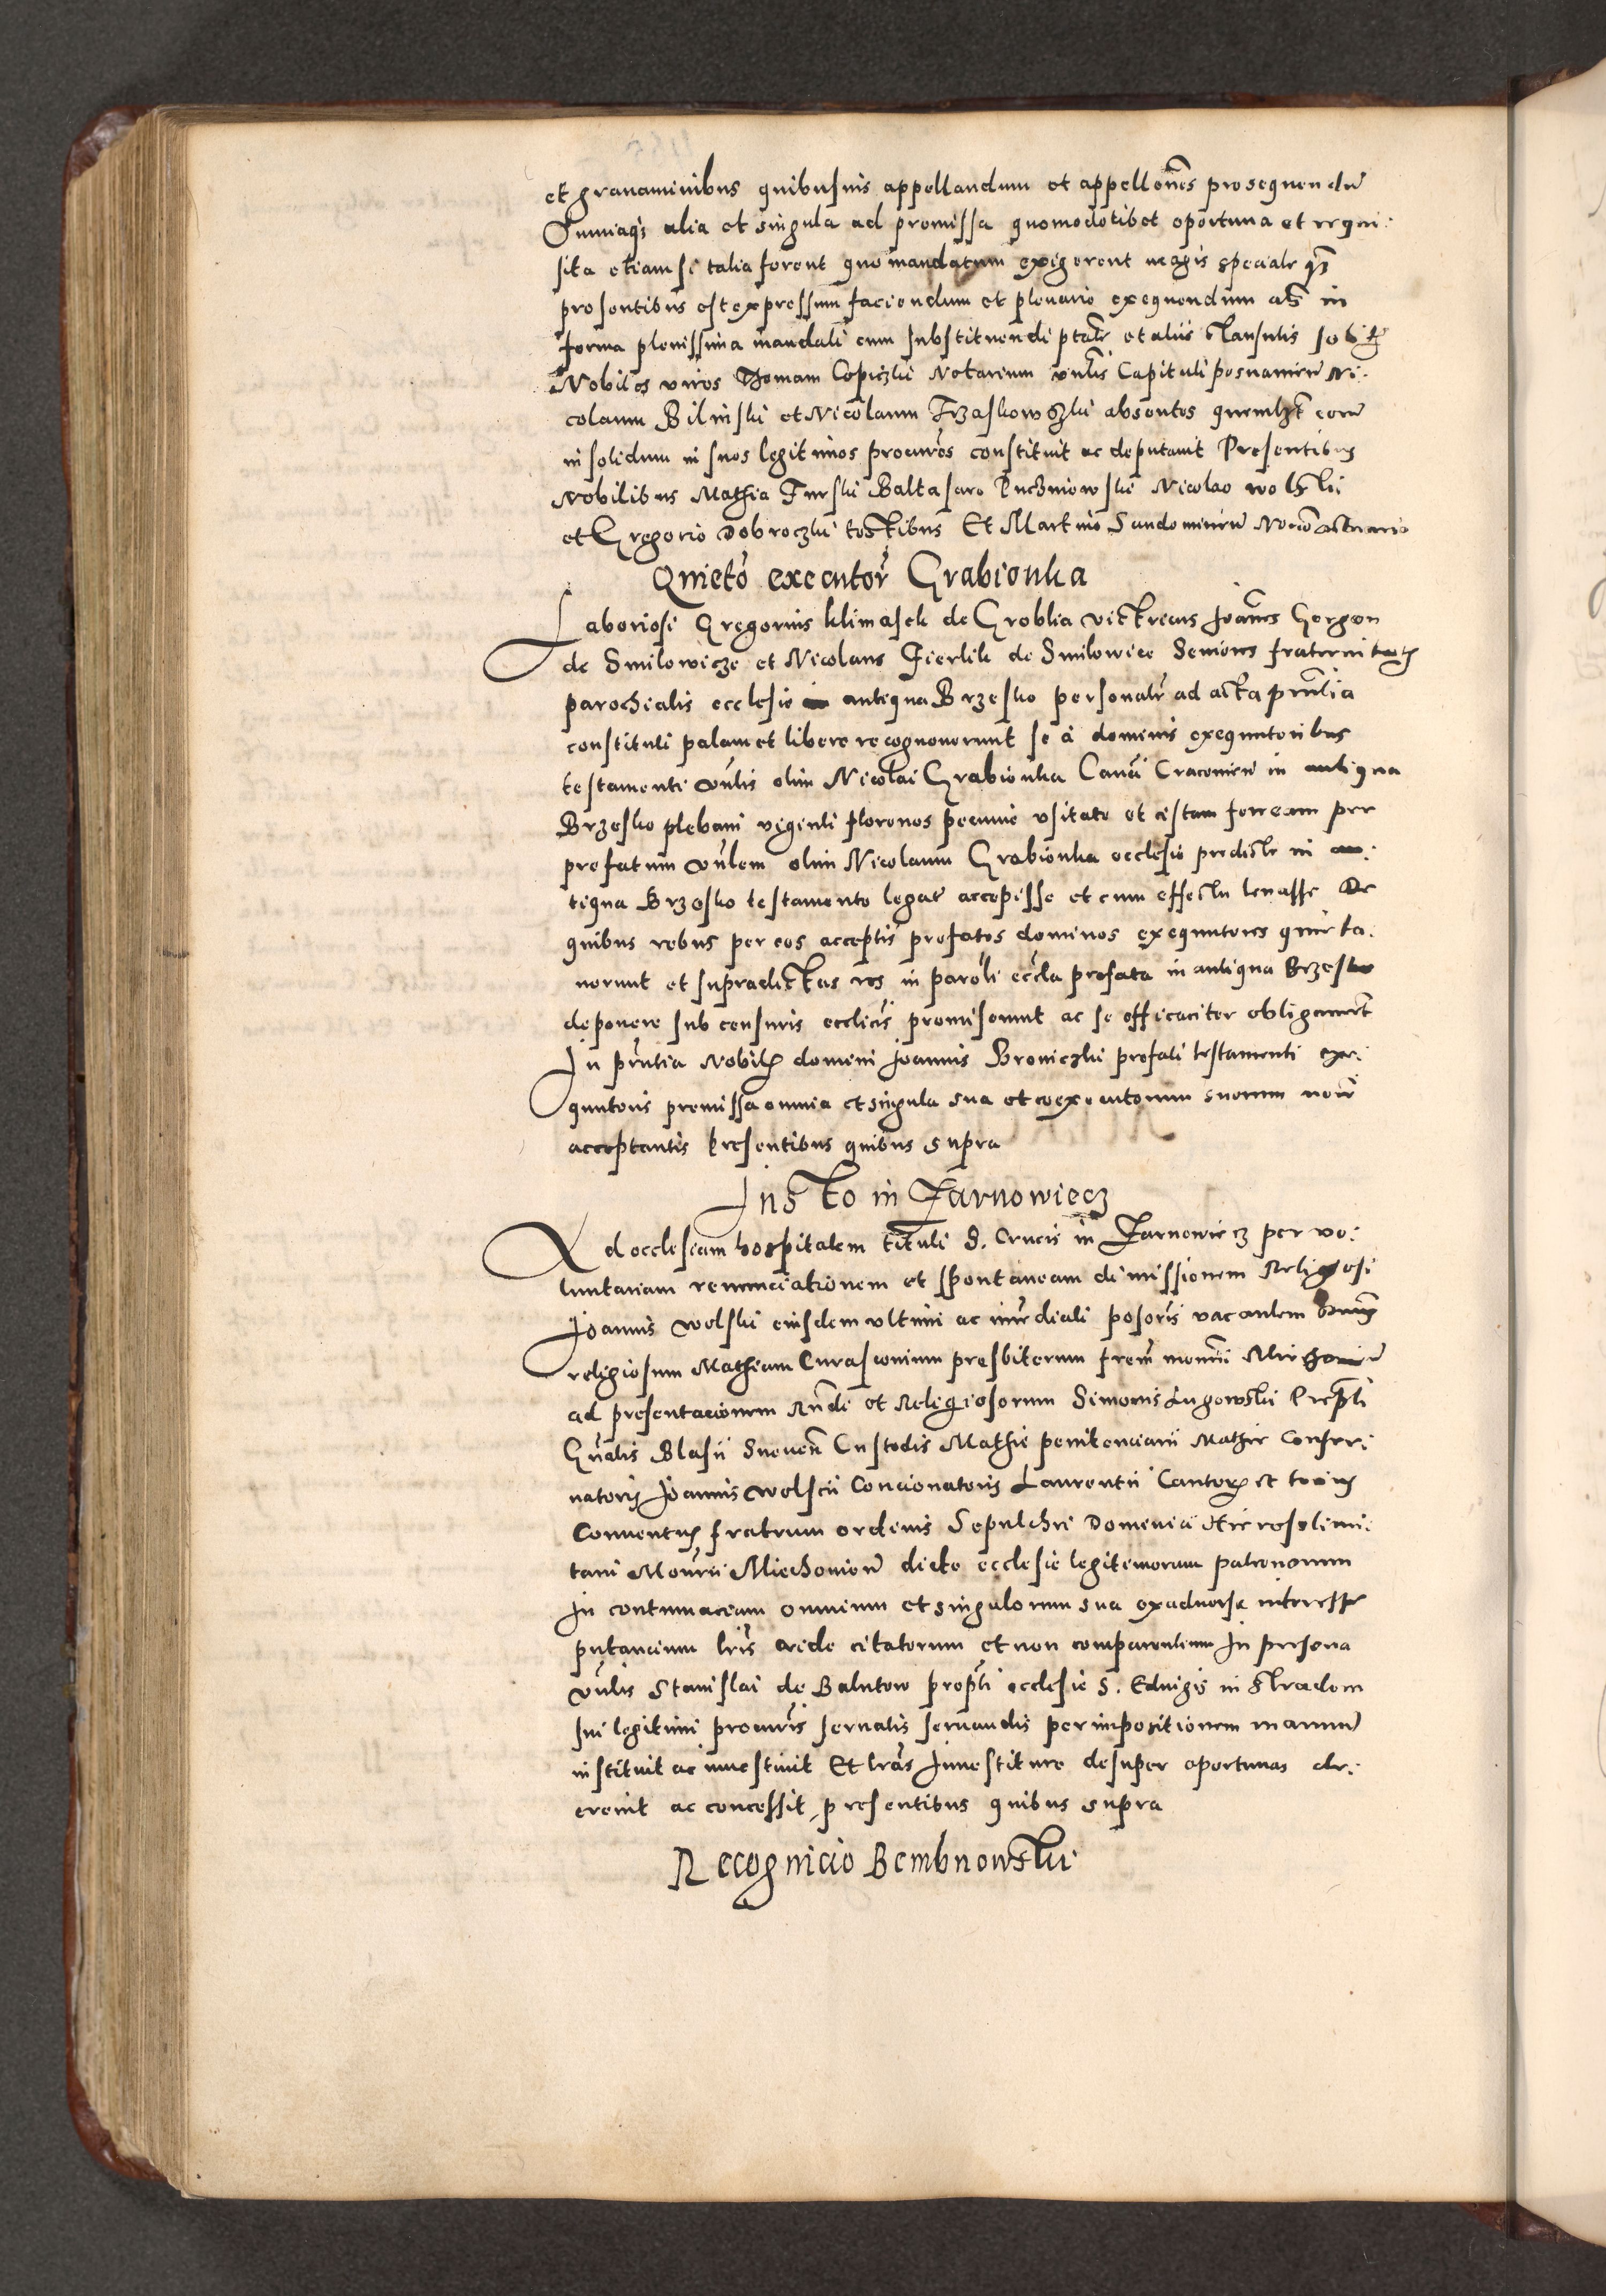 et gravaminibus quibusuis appellandum et appellones prosequendu
Omniaq3 alia et singula ad premissa quomodolibet oportuna et requi:
sita etiam si talia forent que mandatum exigerent magis speciale q3
presentibus est expressum faciendum et plenarie exequendum als in
forma plenissima mandati cum substituendi ptate et aliis clausulis solit
Nobiles viros Thomam Copiczki Notarium vnlis Capituli posnanien Ni:
colaum Bilinski et Nicolaum Trzaskowski absentes quemlt eoru
in solidum in suos legitimos procures constituit ac deputauit Presentibus
Nobilibus Mathia Turski Baltasare Puczniowski Nicolao wolski
et Gregorio Dobroczki testibus Et Martino Sandomirien Notario actuario
Quieto executor Grabionka
Laboriosi Gregorius klimasek de Groblia victricus Joannes Gorgon
de Smilowicze et Nicolaus Gierlik de Smilowice Seniores fraternitatis
parochialis ecclesie antiqua Brzesko personalr ad acta prntia
constituti palam et libere recognouerunt se a dominis exequutoribus
testamenti vnlis olim Nicolai Grabionka Canci Cracouien in antiqua
Brzesko plebani viginti florenos pecunie vsitate et cistam ferream per
prefatum vnlem olim Nicolaum Grabionka ecclesie predicte in an:
tiqua Brzesko testamento legat accepisse et cum effectu leuasse De
quibus rebus per eos acceptis prefatos dominos exequutores quieta:
uerunt et supradictas res in paroli eccla prefata in antiqua Brzesko
deponere sub censuris ecclicis promiserunt ac se efficaciter obligarunt
In prntia Nobilis domini Joannis Broniczki prefati testamenti exe:
quutoris premissa omnia et singula sua et coexecutorum suorum noie
acceptantis Presentibus quibus supra
Insto in Jarnowiecz
Ad ecclesiam hospitalem tituli S. Crucis in Jarnowiecz per vo:
luntariam renunciationem et spontaneam dimissionem Religiosi
Joannis wolski eiusdem vltimi ac immediati posoris vacantem
religiosum Mathiam Curasconium presbiterum frem monrii Miechouien
ad presentacionem Rndi et Religiosorum Simonis Lugowski Prepti
Gnalis Blasii Sueuen Custodis Mathie penitenciarii Mathie Conser:
uatoris Joannis wolscii Concionatoris Laurentii Cantoris et totius
Conuentus fratrum ordinis Sepulchri Dominici Hierosolimi:
tani Monrii Miechouien dicte ecclesie legitimorum patronorum
In contumaciam omnium et singulorum sua exaduerse interesse
putancium lris cride citatorum et non comparentium In persona
vnlis Stanislai de Balutow prepti ecclesie S. Eduigis in Stradom
sui legitimi procuris seruatis seruandis per impositionem manuu
instituit ac inuestiuit Et lras Inuestiture desuper oportunas de:
creuit ac concessit presentibus quibus supra
Recognicio Bembnowski